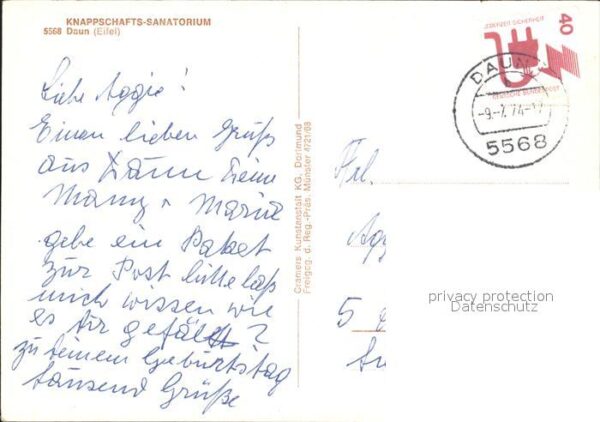 KNAPPSCHAFTS-SANATORIUM
5568 Daun (Eifel)
Liebe Aggie!
Einen lieben Gruß
aus Daun Deine
Mamy
gebe ein Paket
zur Post bitte laß
mich wissen wie
es dir gefällt?
zu deinem Geburtstag
tausend Grüße
Cramers Kunstanstalt KG, Dortmund
Freigeg. d. Reg.-Präs. Münster 4721/68
JEDERZEIT SICHERHEIT
40
DEUTSCHE BUNDESPOST
DAUN
-9.-7.74-17
5568
Frl.
Agg
5
privacy protection
Datenschutz